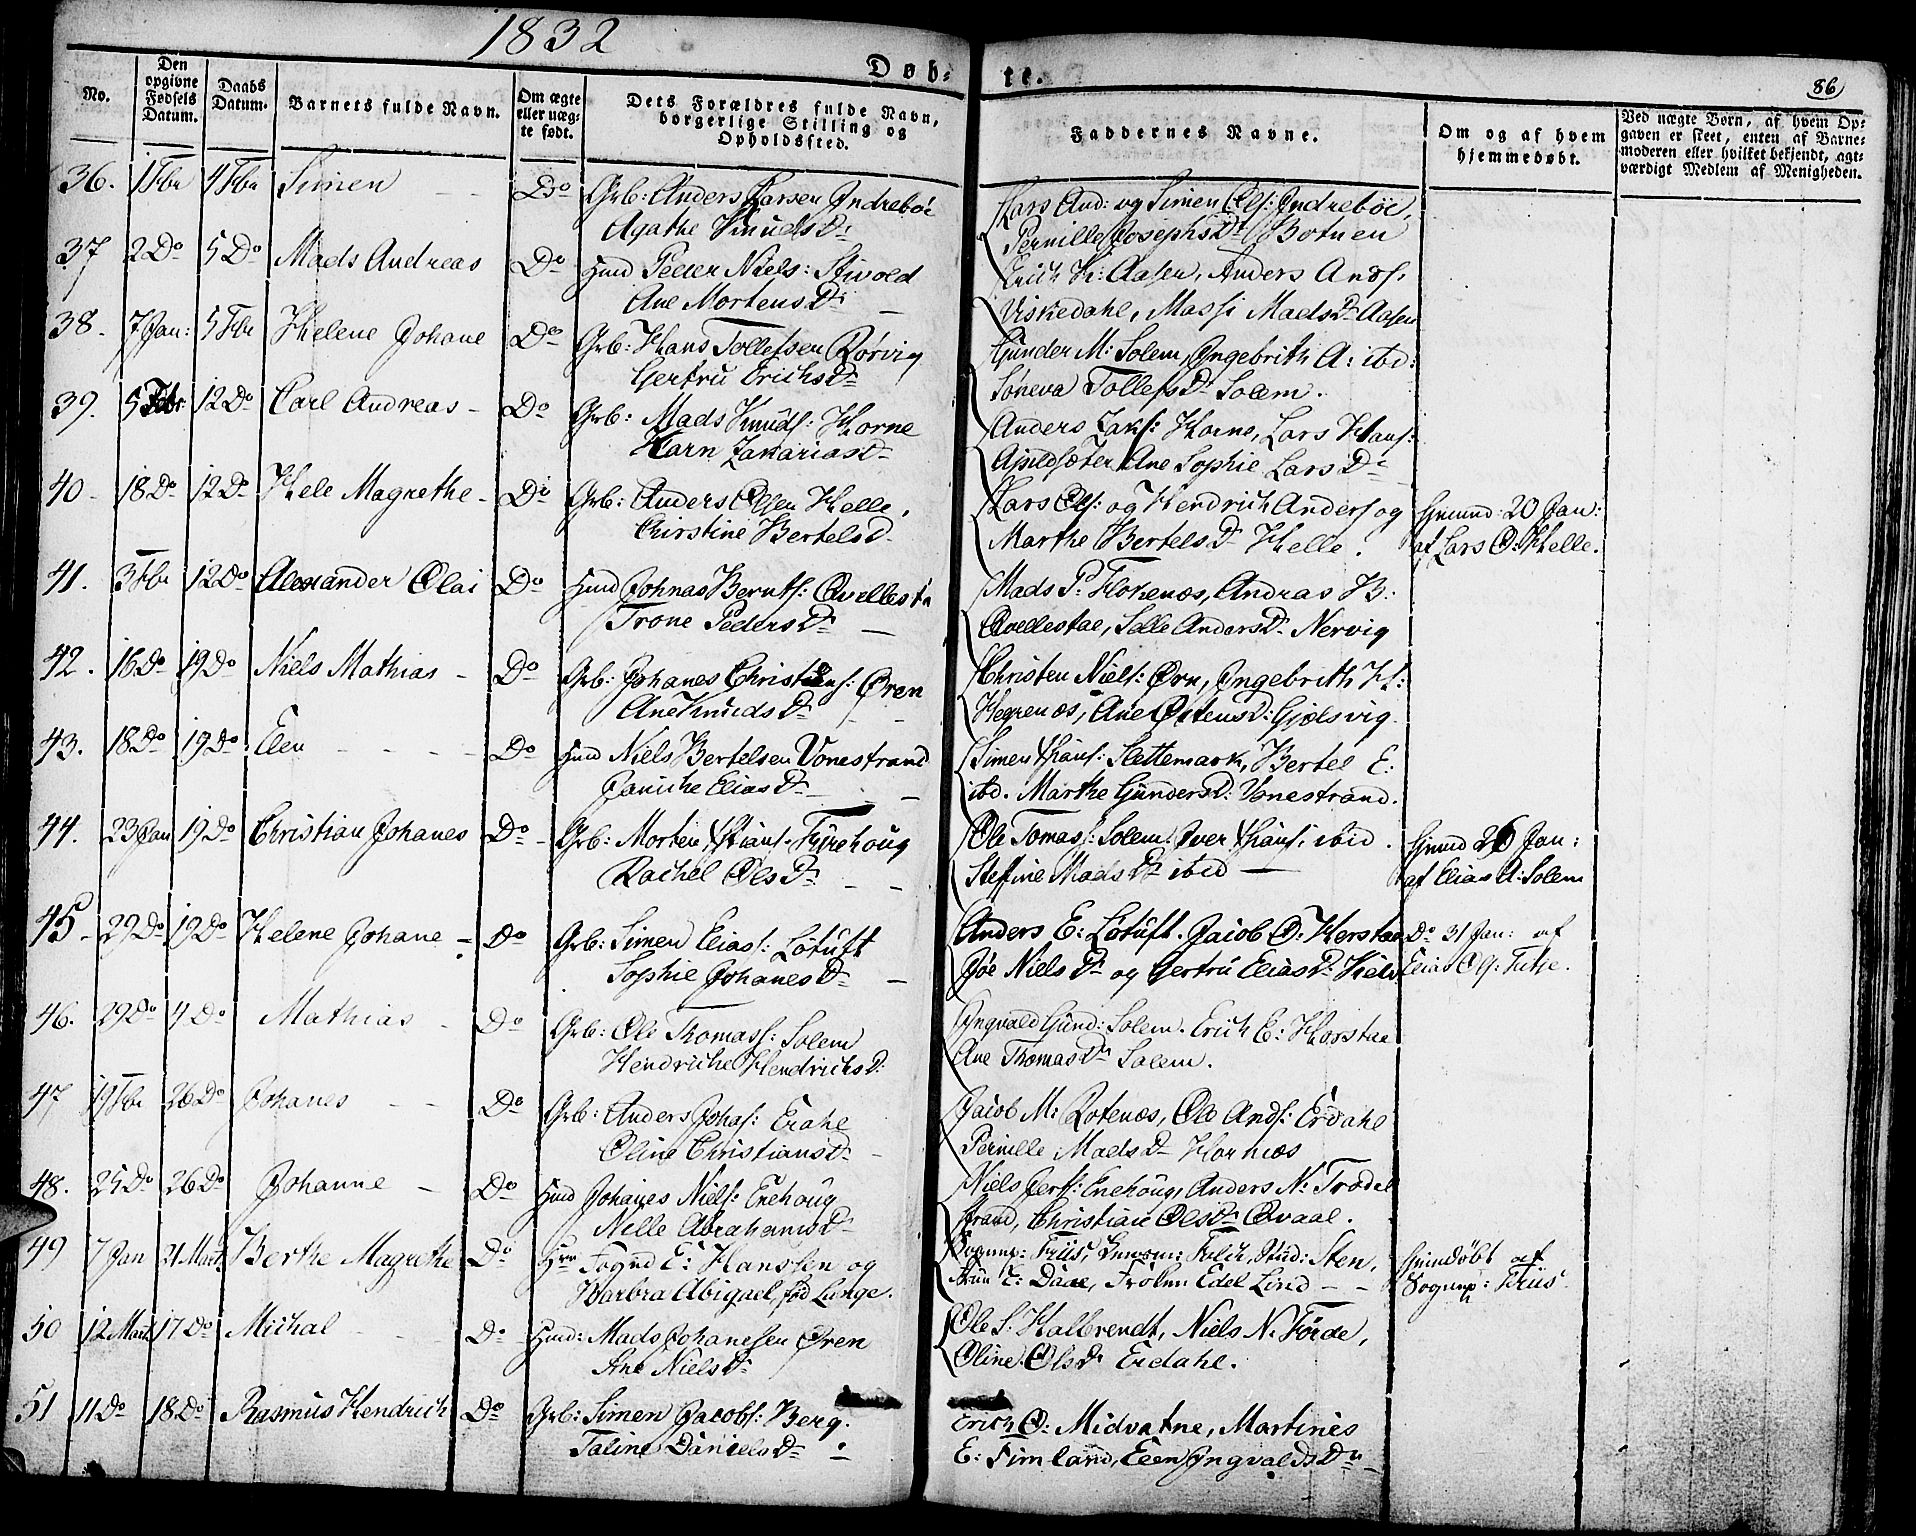 1832
Døb-
te.
86
No.
Den opgivne Fødsels Datum.
Daabs Datum.
Barnets fulde Navn.
Om ægte eller uægte født.
Dets Forældres fulde Navn, borgerlige Stilling og Opholdssted.
Faddernes Navne.
Om og af hvem hjemmedøbt.
Ved uægte Børn, af hvem Opgaven er skeet, enten af Barnemoderen eller hvilket bekjendt, agtværdigt Medlem af Menigheden.
36. 1 Fbr 4 Fbr Simen Do Grb: Anders Larsen Indrebøe
Agathe KnudsDr
Lars And: og Simen Ols: Indrebøe,
Pernille JosephsDr Botnen
37 2 Do 5 Do Mads Andreas Do Hmd Peder Niels: Stivold
Ane MortensDr
Erich K: Aasen, Anders Ands:
Viskedahl, Massi MadsDr Aasen
38. 7 Jan: 5 Fbr Helene Johane Do Grb: Hans Tollefsen Rørvig
Gertru ErichsDr
Gunder M: Solem, Ingebrith A: ibd:
Søneva TollefsDr Solem.
39. 5 Febr 12 Do Carl Andreas Do Grb: Mads Knuds: Horne
Karn ZakariasDr
Anders Zaks: Horne, Lars Hans:
Ane Sophie LarsDr
40 18 Do 12 Do Hele Magrethe Do Grb: Anders Olsen Helle,
Christine BertelsD
Lars Ols: og Hendrich Anders og
Marthe BertelsDr Helle.
20 Jan:
af Lars O: Helle.
41. 3 Fbr 12 Do Alexander Olai Do Hmd Johnas Bernts: Qvellesta
Trone PedersDr
Mads P: Flokenæs, Andras B:
Qvellestae, Selle AndersDr Nervig
42. 16 Do 19 Do Niels Mathias Do Grb: Johanes Christens: Øren
Ane KnudsDr
Christen Niels: Ørn, Ingebrith H:
Hegrenæs, Ane ØstensDr: Gjelsvig
43. 18 Do 19 Do Elen Do Hmd Niels Bertelsen Vonestrand
Janiche EliasDr
Simen Slettemark, Bertel E:
ibd. Marthe GundersDr: Vonestrand.
44. 23 Jan 19 Do Christian Johanes Do Grb: Morten Fyrehoug
Rachel OlsDr
Ole Tomas: Solem. Iver ibid.
Steffine MadsDr ibid
26 Jan:
af Elias A: Solem
45 29 Do 19 Do Helene Johane Do Grb: Simen Elias: Løtuft
Sophie JohanesDr
Anders E: Løtuft. Jacob O: Herstae
NielsDr og Gertru EliasDr:
Do 31 Jan: af
Elias Ols: Titje.
46. 29 Do 4 Do Mathias Do Grb: Ole Thomass: Solem
Hendriche HendrichsD:
Ingvald Gund: Solem. Erich E: Horstae
Ane ThomasDr Solem.
47 19 Fbr 26 Do Johanes Do Grb: Anders Johas: Erahl
Oline ChristiansDr
Jacob M: Rotenæs, Ole Ands: Erdahl
Pernille MadsDr Hornæs
48. 25 Do 26 Do Johanne Do Hmd Johanes Niels: Enehoug
Nille AbrahamsDr
Niels Enehoug, Anders N: Trædel
strand, Christiane OlsDr Qvaal.
49 7 Jan 21 Mart Berthe Magrethe Do Hrr Fogud E: Hanssen og
Warbra Abigael, fød Lunge.
Sogenp: Friis, Stud: Sten,
E: Daae, Frøken Edel Lind
af
Sogenp: Friis
50 12 Mart 17 Do Michal Do Hmd: Mads Johanesen Øren
Ane NielsDr
Ole S: Halbrendt, Niels N: Førde,
Oline OlsDr Erdahl.
51 11 Do 18 Do Rasmus Hendrich Do Grb: Simen Jacobs: Berg.
Taline DanielsDr
Erich O: Midvatne, Martines
E: Fimland, Elen IngvaldsDr